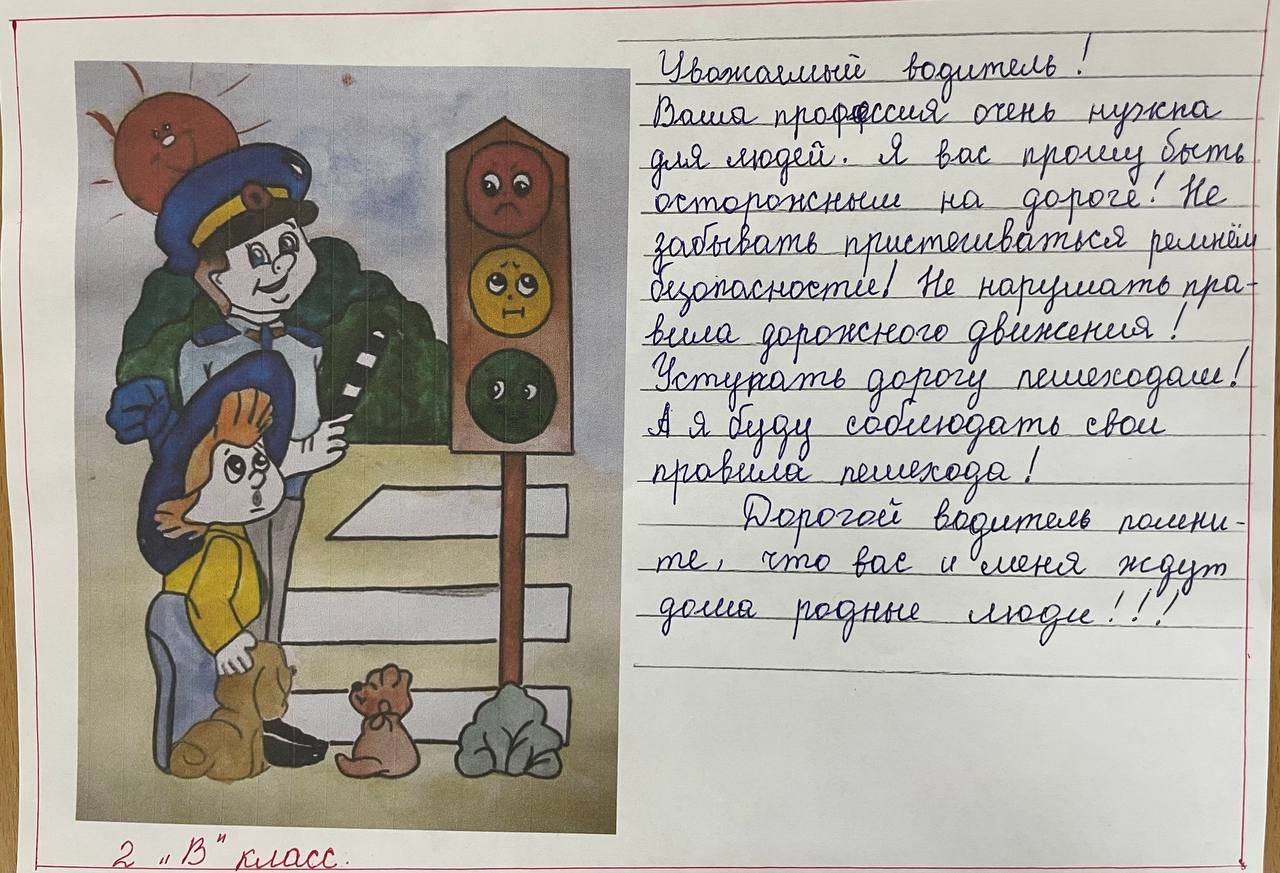 Уважаемый водитель!
Ваша профессия очень нужна
для людей. Я вас прошу быть
осторожным на дороге! Не
забывать пристегиваться ремнём
безопасности! Не нарушать пра-
вила дорожного движения!
Уступать дорогу пешеходам!
А я буду соблюдать свои
правила пешехода!
Дорогой водитель помни-
те, что вас и меня ждут
дома родные люди!!!
2 „В" класс.